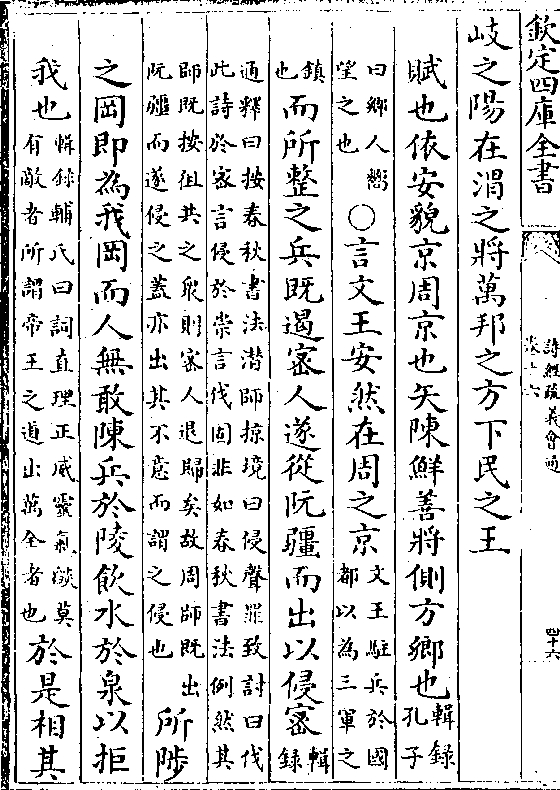 欽定四庫全書
詩經疏義會通
卷十六
四十六
岐之陽在渭之將萬邦之方下民之王
賦也依安貌京周京也矢陳鮮善將側方鄉也輯録孔子
曰鄉人嚮望之也○言文王安然在周之京文王駐兵於國都以為三軍之
鎮也而所整之兵既遏密人遂從阮疆而出以侵密輯録
通釋曰按春秋書法潜師掠境曰侵聲罪致討曰伐
此詩於密言侵於崇言伐固非如春秋書法例然其
師既按徂共之衆則密人退歸矣故周師既出
阮疆而遂侵之蓋亦出其不意而謂之侵也所陟
之岡即為我岡而人無敢陳兵於陵飲水於泉以拒
我也輯録輔氏曰詞直理正威靈氣燄莫有敵者所謂帝王之道出萬全者也於是相其